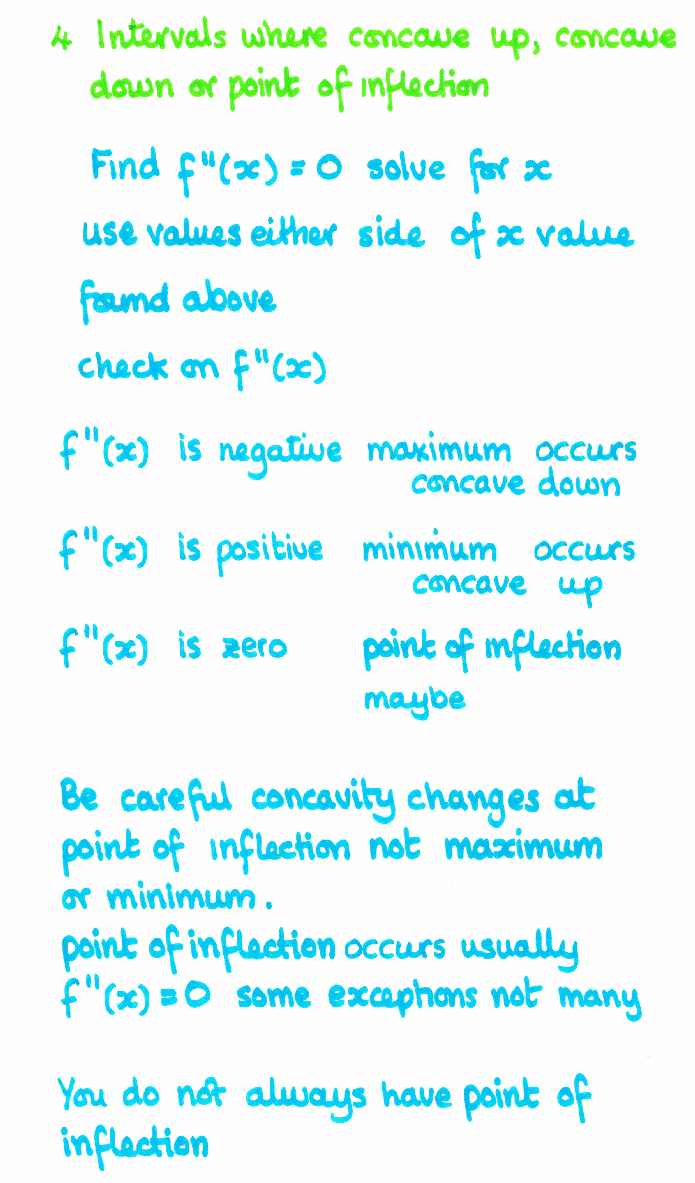 4 Intervals where concave up, concave
down or point of inflection
Find f"(x) = 0 solve for x
use values either side of x value
found above
check on f"(x)
f"(x) is negative maximum occurs
concave down
f"(x) is positive minimum occurs
concave up
f"(x) is zero point of inflection
maybe
Be careful concavity changes at
point of inflection not maximum
or minimum.
point of inflection occurs usually
f"(x) = 0 some exceptions not many
You do not always have point of
inflection